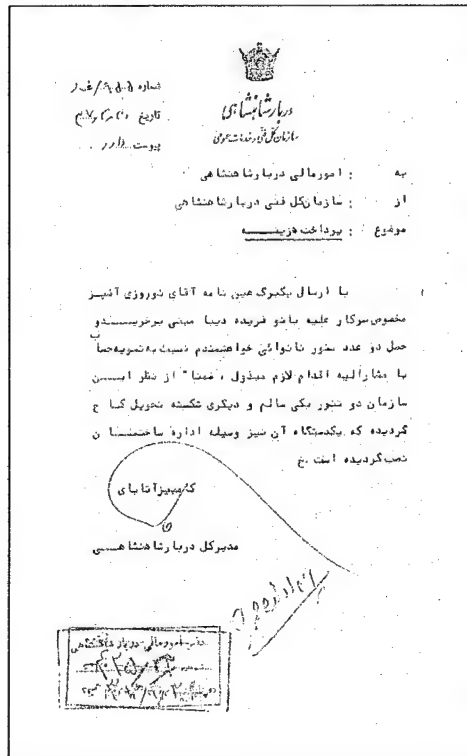 شماره
تاریخ
پیوست دارد
دربار شاهنشاهی
سازمان کل فنی و خدمات عمومی
به : امور مالی دربار شاهنشاهی
از : سازمان کل فنی دربار شاهنشاهی
موضوع : پرداخت هزینه
با ارسال یکبرگ عین نامه آقای نوروزی آشپز
مخصوص سرکار علیه بانو فریده دیبا مبنی برخرید و
حمل دو عدد تنور نانوائی خواهشمندم نسبت به تسویه حساب
با مشارالیه اقدام لازم مبذول ، ضمنا" از نظر ایـــن
سازمان دو تنور یکی سالم و دیگری شکسته تحویل کاخ
گردیده که یکدستگاه آن نیز وسیله اداره ساختمـــان
نصب گردیده است .خ
کامبیز آتابای
مدیرکل دربار شاهنشاهـــی
دفتر امور مالی دربار شاهنشاهی
شماره